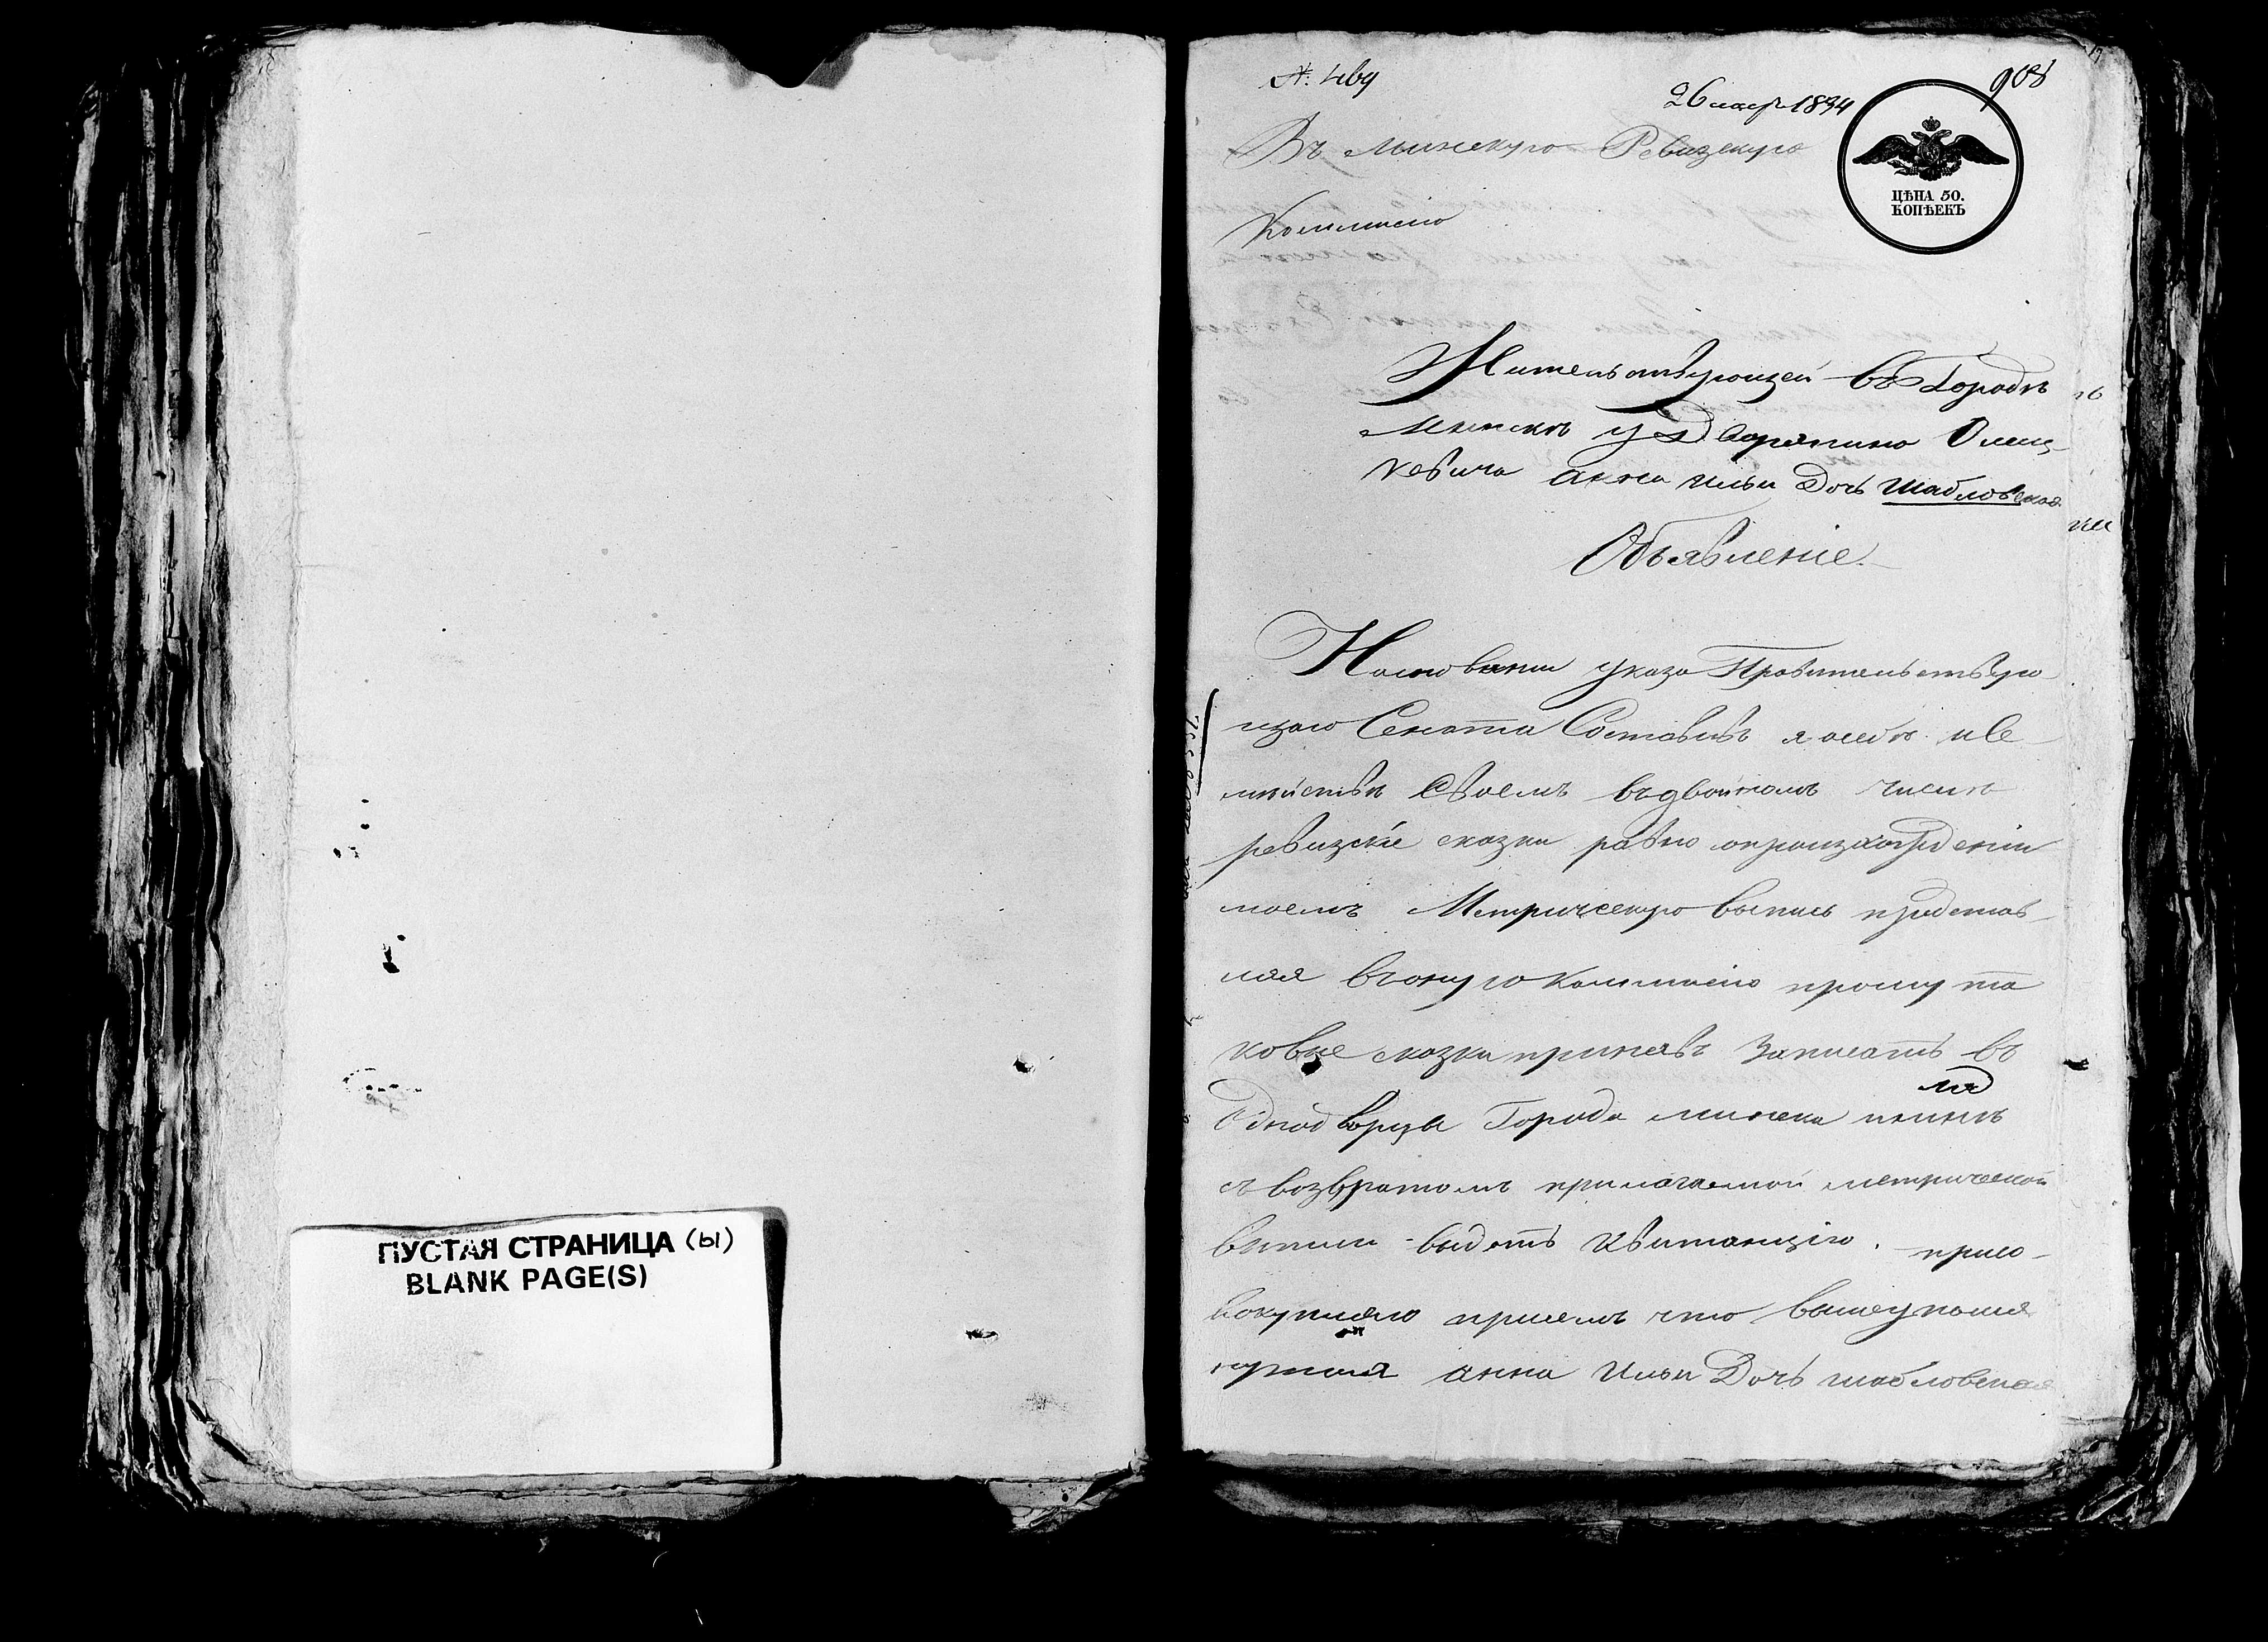 ПУСТАЯ СТРАНИЦА (ы)
BLANK PAGE(S)
908
26 март 1834
ЦѢНА 50.
КОПѢЕКЪ
Въ Минскую Ревизскую
Коммисію
Жительствующей въ Городѣ
Минскѣ у Дворянина
кевича Анна Ильи Дочь Шабловская
Объявленіе.
Наосновании указа Правительствую
щаго Сената Составивъ я осебѣ исе
мѣйствѣ Своемъ въдвойномъ числѣ
ревизскіе сказки равно опроизхождении
моемъ Метрическую выпись представ
ляя въоную Коммисію прошу та
ковые сказки принявъ Записать въ
Однодворцы Города Минска инынѣ
съвозвратомъ прилагаемой метрической
выписи выдать Квитанцію. присо-
вокупляю присемъ что вышеупомя
нутая Анна Ильи Дочь Шабловская